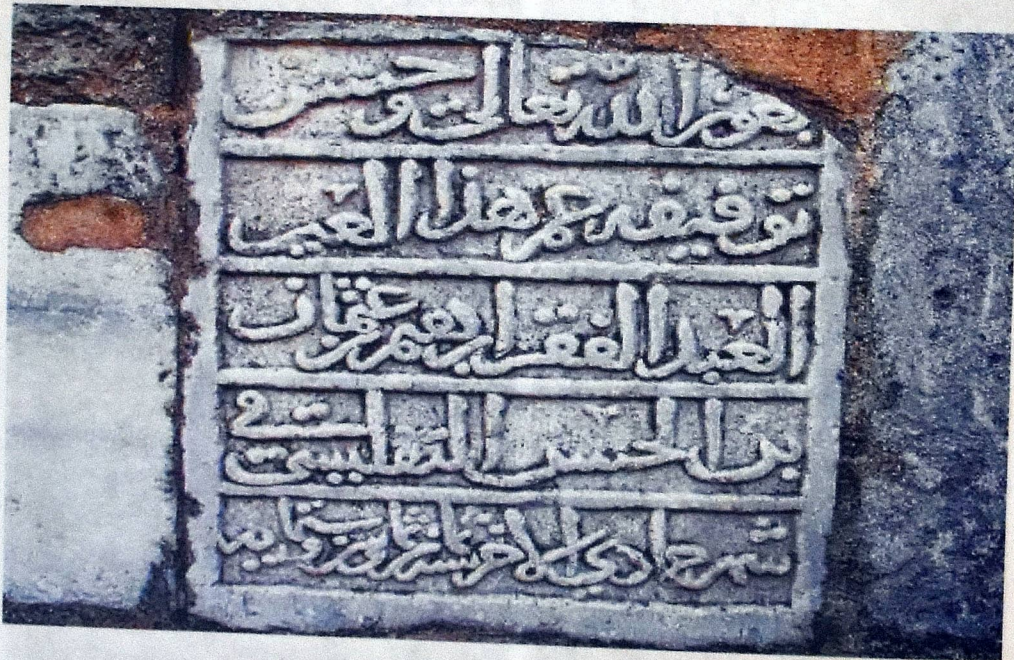 بعون الله تعالى وحسن
توفيقه عمر هذا العين
العبد الفقير ابرهيم بن عثمان
بن الحسن التفليسي في
شهر جمادي الاخر سنة ثمان وستمايه